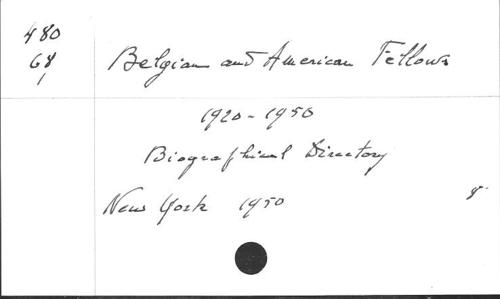 480
68
1
Belgian and American Fellows
1920-1950
Biographical Directory
New York 1950
8°